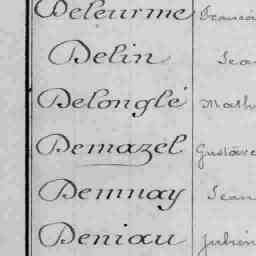 Deleurme
Delin
Delonglé Math
Demazel Gustave
Demnay Jean
Deniau Julien